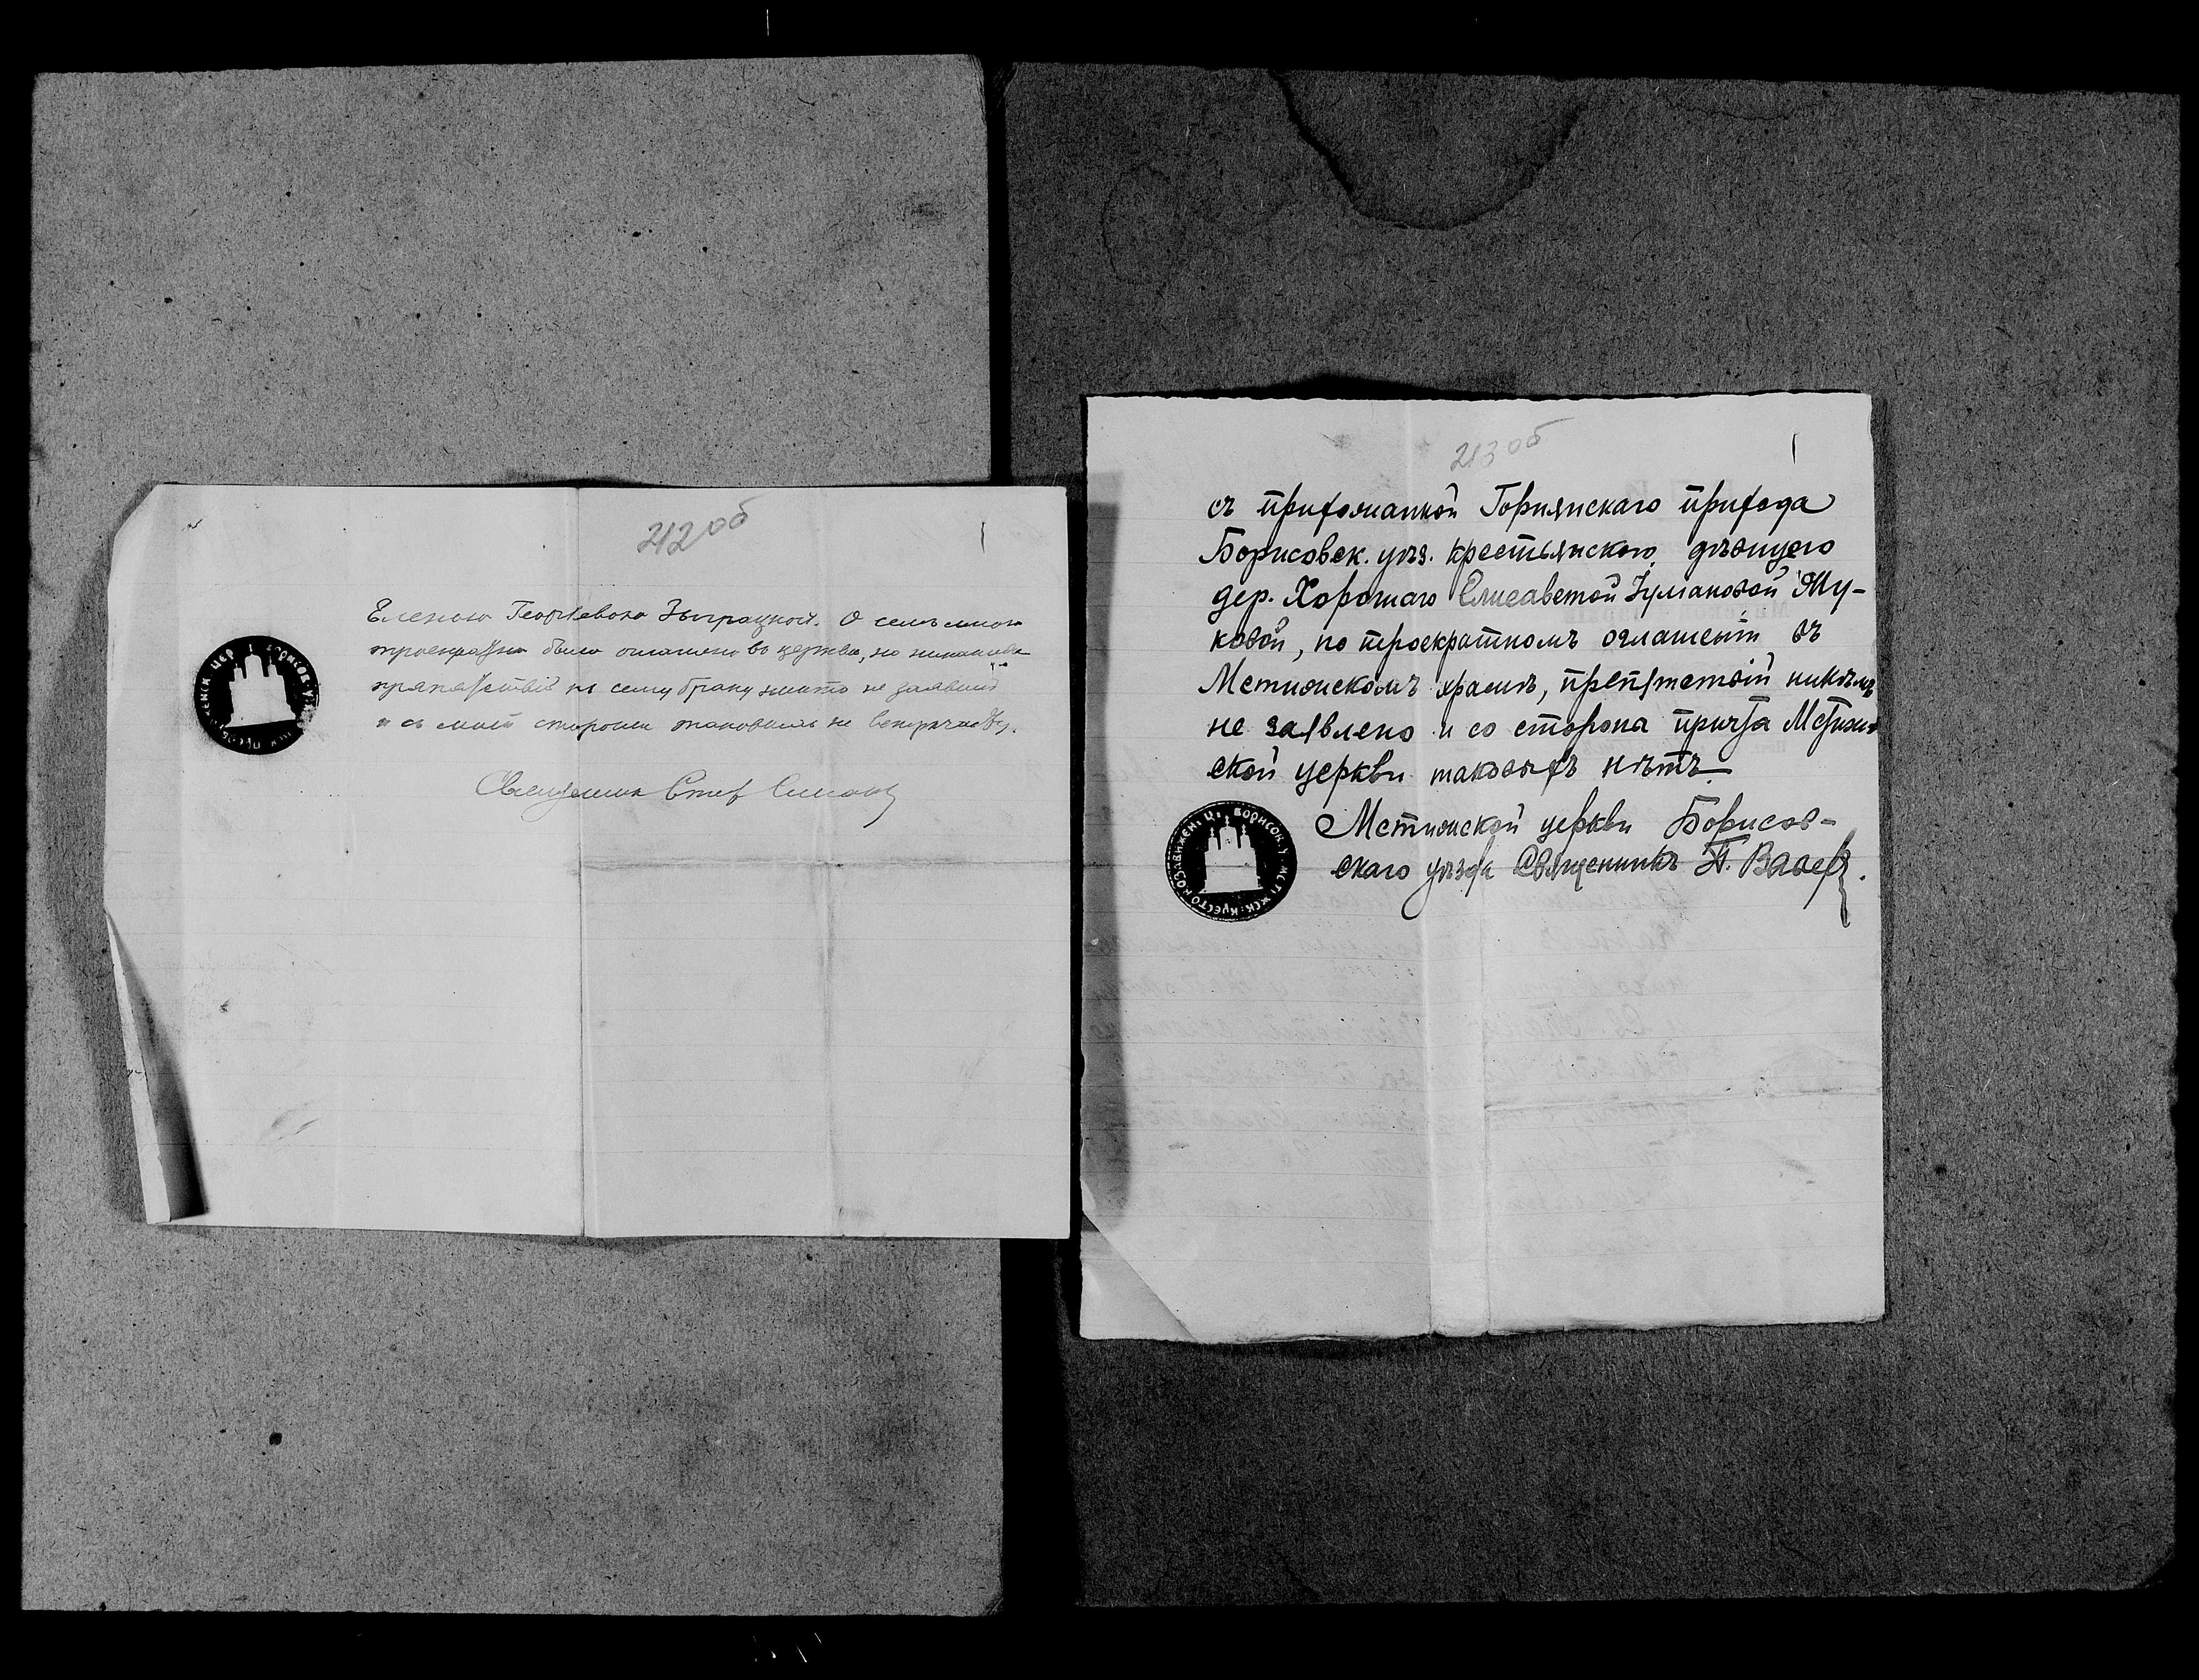 212 об
Еленою Георгіевою Зыграцкой. О семъ мною
троекратно было оглашено въ церкви, но никакихъ
препятствій къ сему браку никто не заявилъ
и съ моей стороны таковыхъ не встрѣчается.
Священникъ Стеф
213 об
съ прихожанкой Горнянскаго прихода
Борисовск. уѣз. крестьянскою дѣвицею
дер. Хорошаго Елисаветой Жу-
ковой, по троекратномъ оглашеніи въ
Мстижскомъ храмѣ, препятствій никѣмъ
не заявлено и со стороны причта Мстиж-
ской церкви таковыхъ нѣтъ.
Мстижской церкви Борисов-
скаго уѣзда Священникъ П.
КРЕСТОВОЗДВИЖЕН. Ц. БОРИСОВ. У. МСТИЖСК.